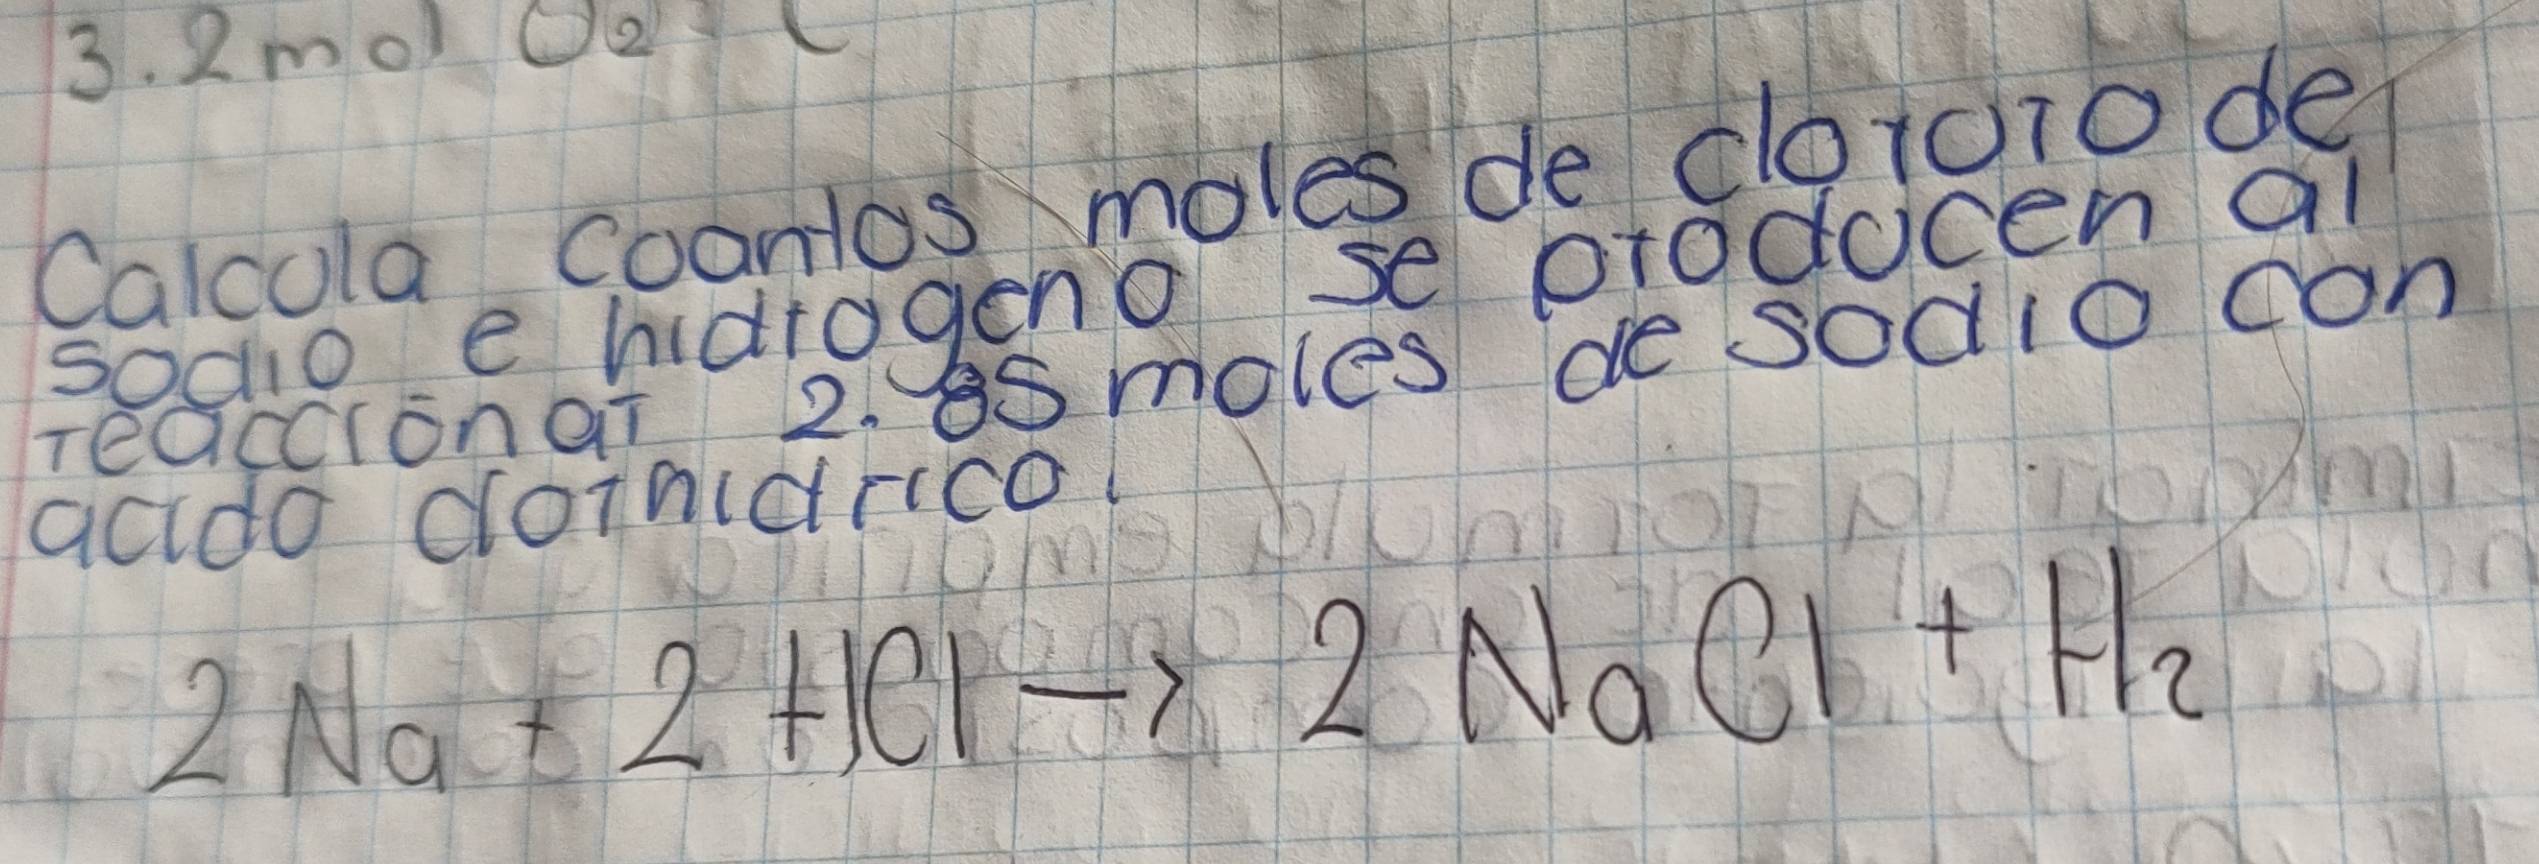 3.2mol O2
Calcula coantos moles de cloroto de
sodio e hidrogeno se producen al
reaccionar 2.85 moles de sodio con
acido clorhidrico.
2Na + 2HCl → 2NaCl + H2